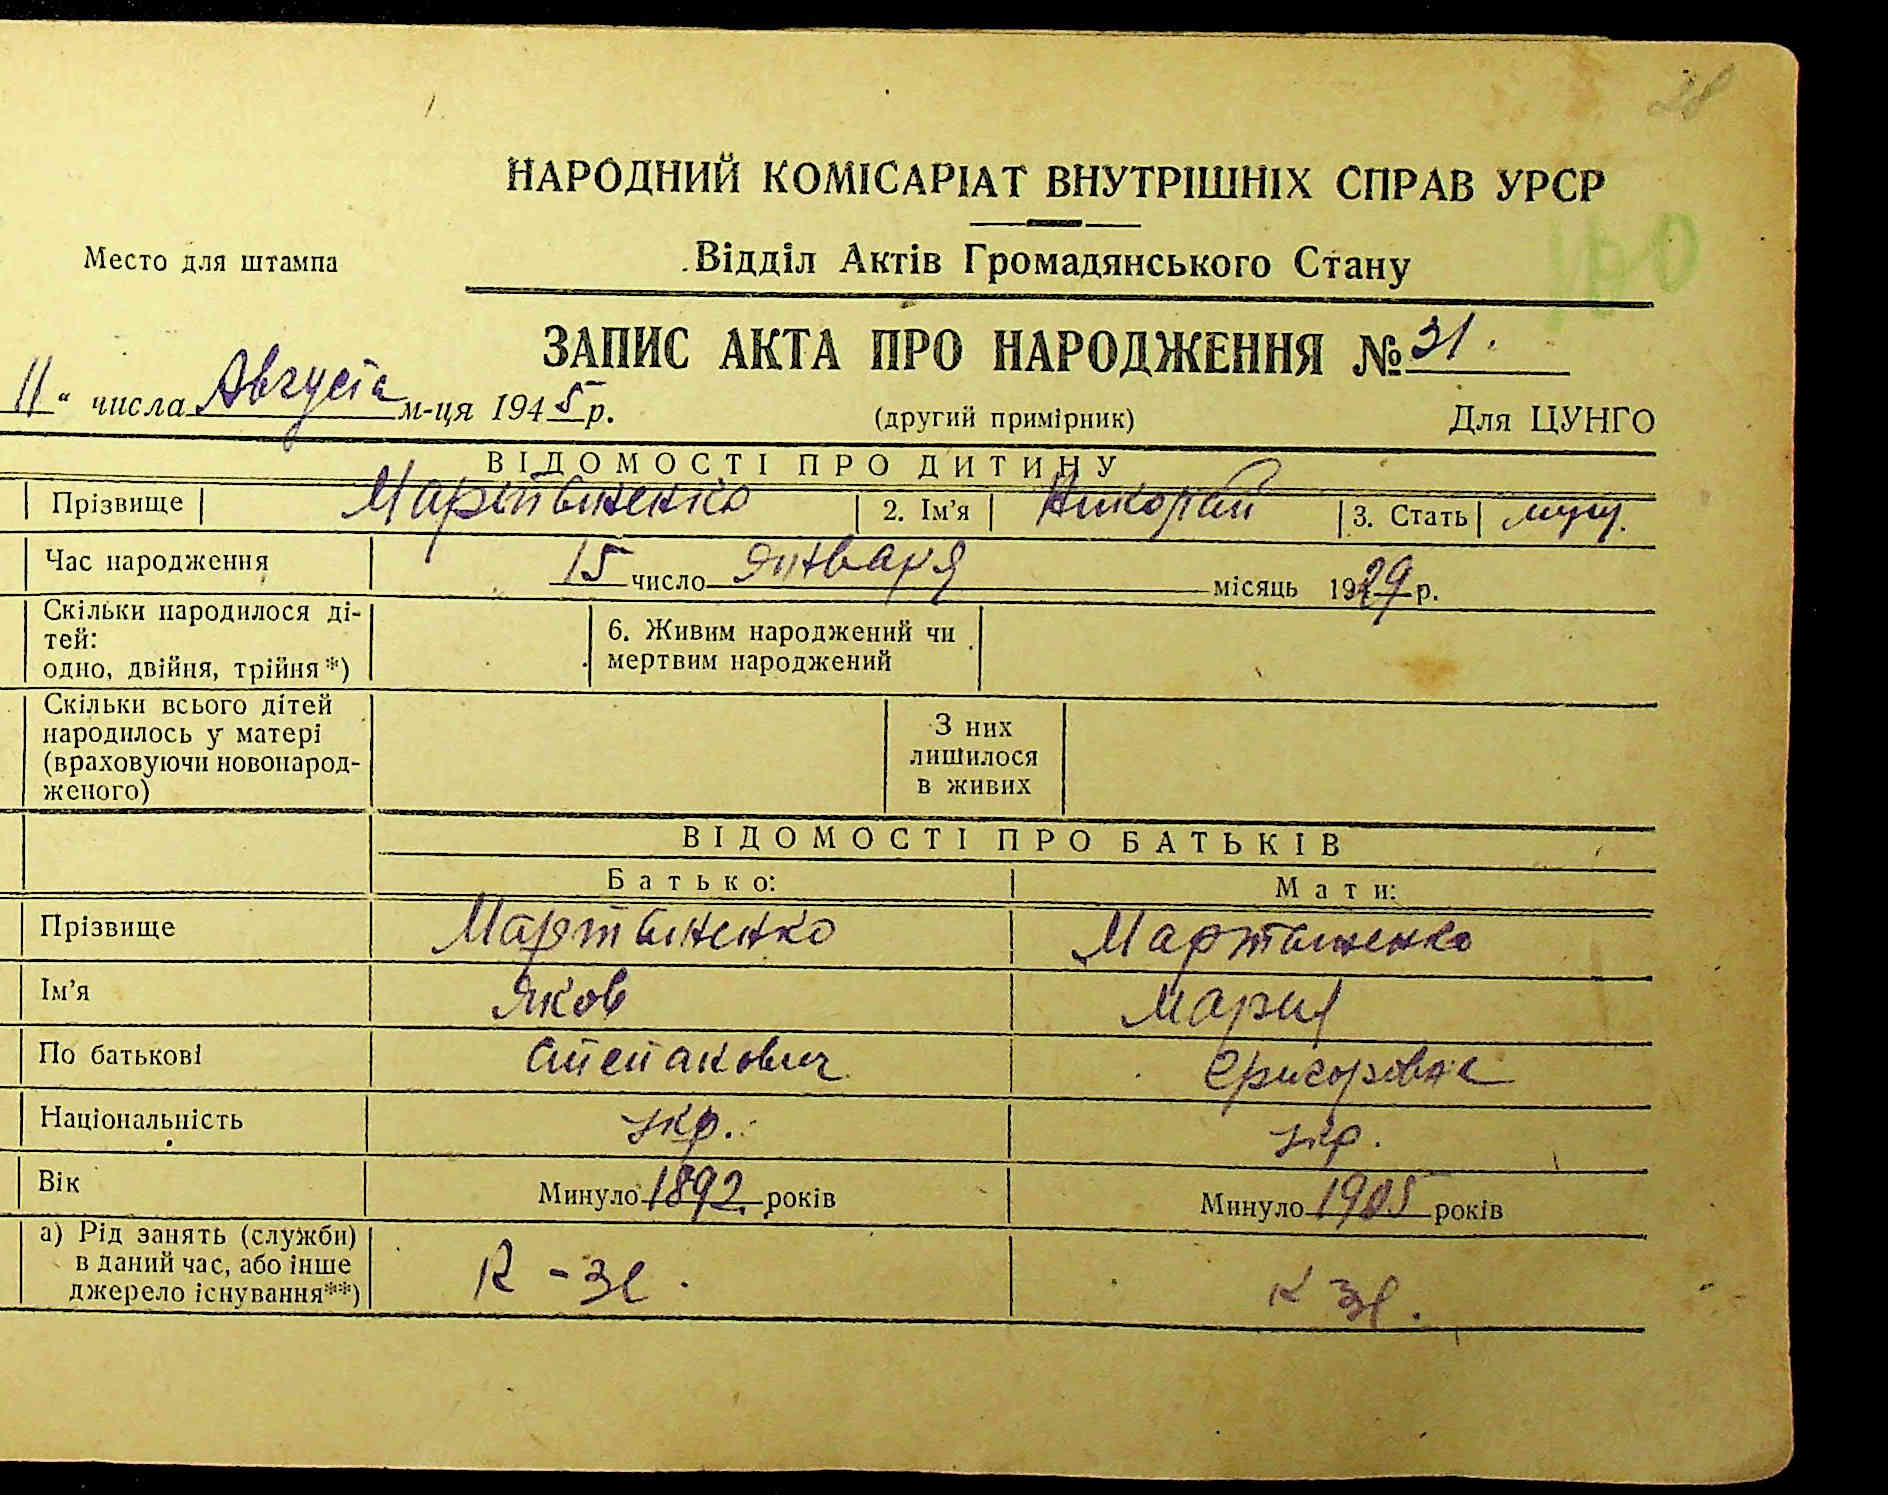 28
НАРОДНИЙ КОМІСАРІАТ ВНУТРІШНІХ СПРАВ УРСР
Место для штампа
Відділ Актів Громадянського Стану
ЗАПИС АКТА ПРО НАРОДЖЕННЯ № 31.
11 " числа Августа м-ця 1945 р.
(другий примірник) Для ЦУНГО
ВІДОМОСТІ ПРО ДИТИНУ
Прізвище Мартыненко 2. Ім'я Николай 3. Стать муж.
Час народження 15 число января місяць 1929 р.
Скільки народилося ді-
тей:
одно, двійня, трійня *)
6. Живим народжений чи
мертвим народжений
Скільки всього дітей
народилось у матері
(враховуючи новонарод-
женого)
З них
лишилося
в живих
ВІДОМОСТІ ПРО БАТЬКІВ
Батько: Мати:
Прізвище Мартыненко Мартыненко
Ім'я Яков Мария
По батькові Степанович Григоровна
Національність укр. укр.
Вік Минуло 1892 років Минуло 1905 років
а) Рід занять (служби)
в даний час, або інше
джерело існування**)
к-зе. к зе.